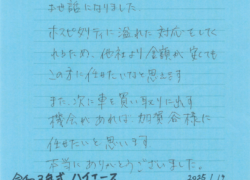 お世話になりました。
ホスピタリティに溢れた対応をしてく
れたため、他社より金額が安くても
この方に任せたいなと思えます
また、次に車を買い取りに出す
機会があれば、加賀谷様に
任せたいと思います
本当にありがとうございました。
令和3年式 ハイエース
2025.1.19